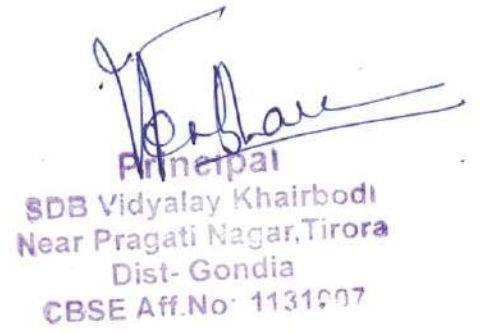 Principal
SDB Vidyalay Khairbodi
Near Pragati Nagar,Tirora
Dist- Gondia
CBSE Aff.No